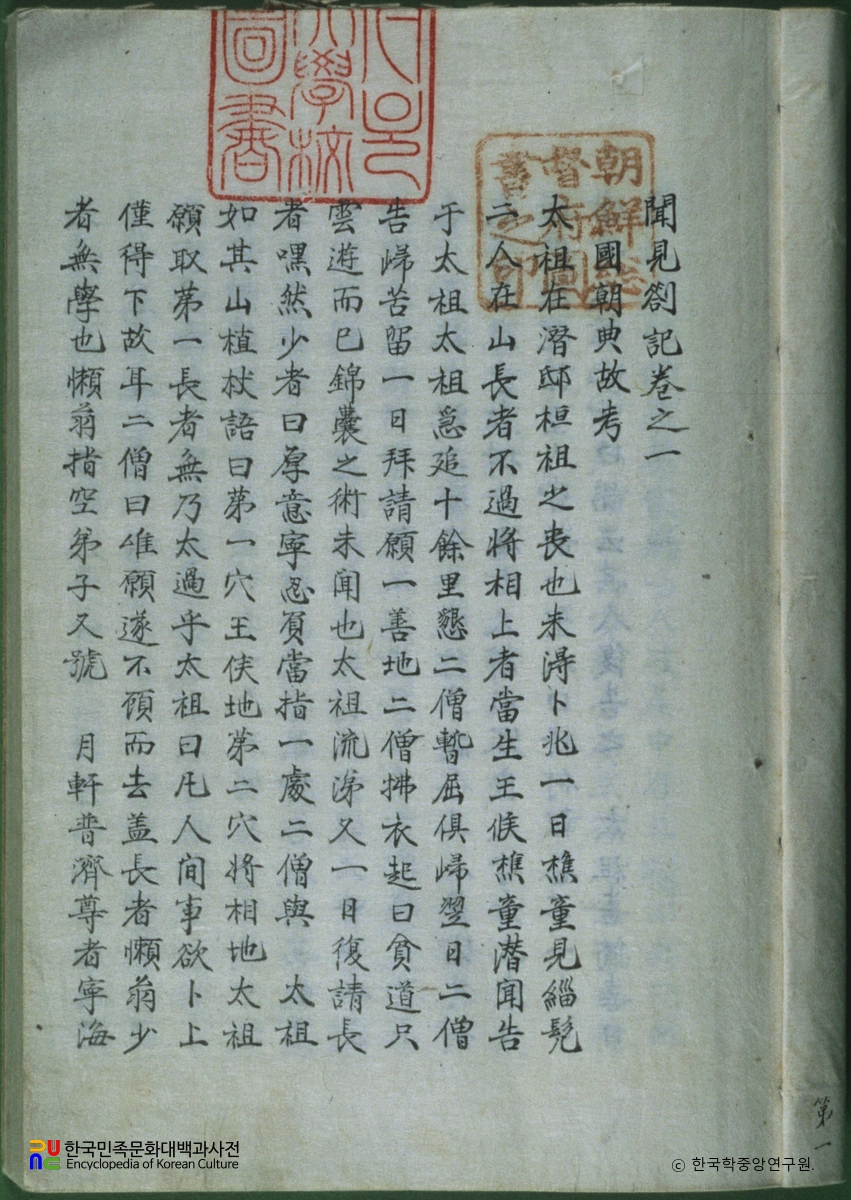 聞見劄記卷之一
國朝典故考
太祖在潛邸桓祖之喪也未得卜兆一日樵童見緇髡
二人在山長者不過將相上者當生王侯樵童潛聞告
于太祖太祖急追十餘里懇二僧暫屈俱歸翌日二僧
告歸苦留一日拜請願一善地二僧拂衣起曰貧道只
雲遊而已錦囊之術未聞也太祖流涕又一日復請長
者嘿然少者曰厚意寧忍負當指一處二僧與 太祖
如其山植杖語曰第一穴王侯地第二穴將相地太祖
願取第一長者無乃太過乎太祖曰凡人间事欲卜上
僅得下故耳二僧曰唯願遂不顧而去盖長者懶翁少
者無學也懶翁指空弟子又號 月軒普濟尊者寧海
朝鮮總
督府圖
書之印
學校
圖書
第一
한국민족문화대백과사전
Encyclopedia of Korean Culture
© 한국학중앙연구원.